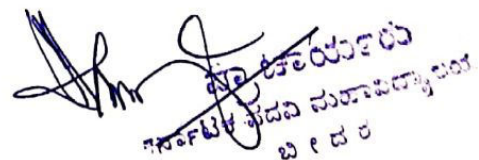 ಪ್ರಾಚಾರ್ಯರು
ಕರ್ನಾಟಕ ಪದವಿ ಮಹಾವಿದ್ಯಾಲಯ
ಬೀದರ